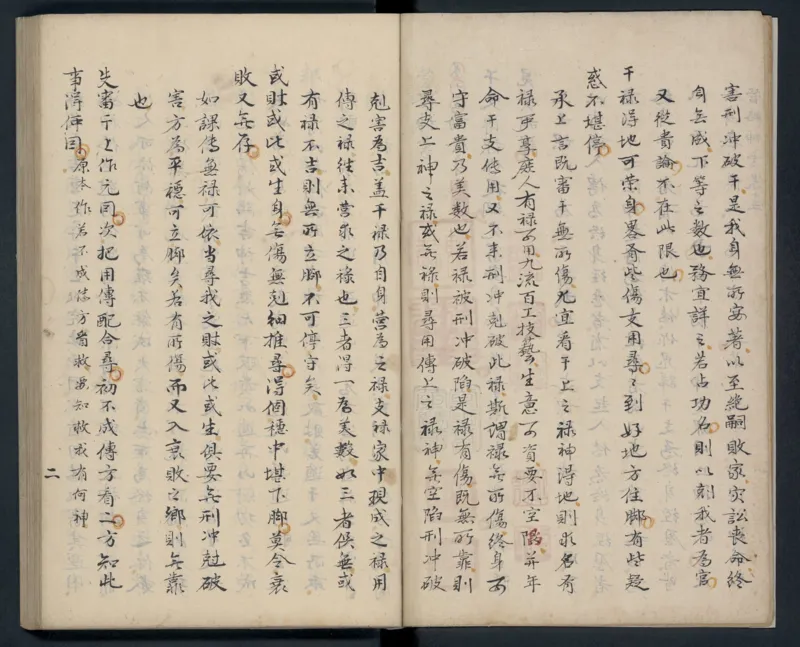 害刑冲破干是我身無所安著以至絶嗣敗家灾訟喪命終
身無成下等之數也務宜詳之若占功名則以剋我者為官
又從貴論不在此限也
干禄得地可榮身畧畜些傷支用尋尋到好地方住脚有些疑
惑不堪停
承上言既畜干無所傷凢宜看干上之禄神得地則求名有
禄可享庶人有禄可用九流百工技藝生意可資要不空陷并年
命干支傳用又不来刑冲尅破此禄斯謂禄無所傷終身可
守富貴乃美數也若禄被刑冲破陷是禄有傷既無所靠則
尋支上神之禄或無禄則尋用傳上之禄神無空陷刑冲破
尅害為吉盖干禄乃自身營為之禄支禄家中現成之禄用
傳之禄徃来营求之禄也三者得一為美數如三者俱無或
有禄不吉則無所立脚不可停守矣
或財或比或生身無傷無尅細推尋得個穩中堪下脚莫令衰
敗又無存
如課傳無禄可依當尋我之財或比或生俱要無刑冲尅破
害方為平穩可立脚矣若有所傷而又入衰敗之鄉則無靠
也
先審干上作元因次把用傳配合尋初不成傳方看二方知此
事得何因 源本作若不成傳方看救要知敗我有何神
二